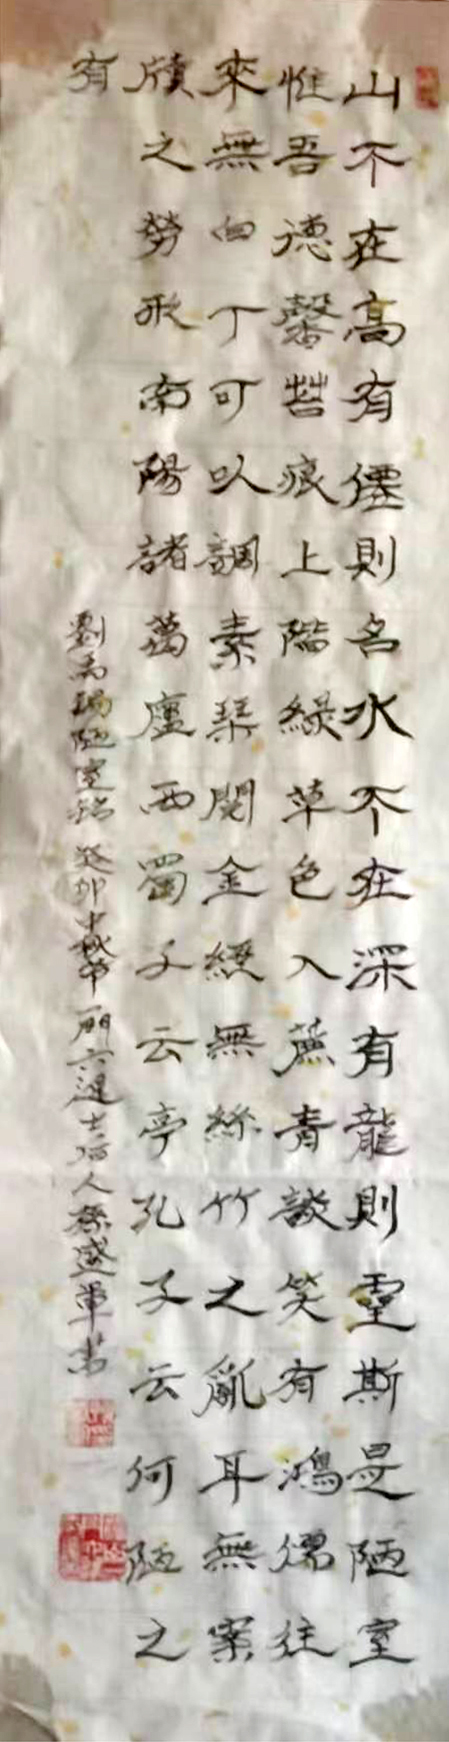 山不在高有僊則名水不在深有龍則靈斯是陋室
惟吾德馨苔痕上階綠草色入簾青談笑有鴻儒往
來無白丁可以調素琴閱金經無絲竹之亂耳無案
牘之勞形南陽諸葛廬西蜀子云亭孔子云何陋之
有
劉禹錫陋室銘 癸卯中秋節 一門六進士后人孫盛軍書